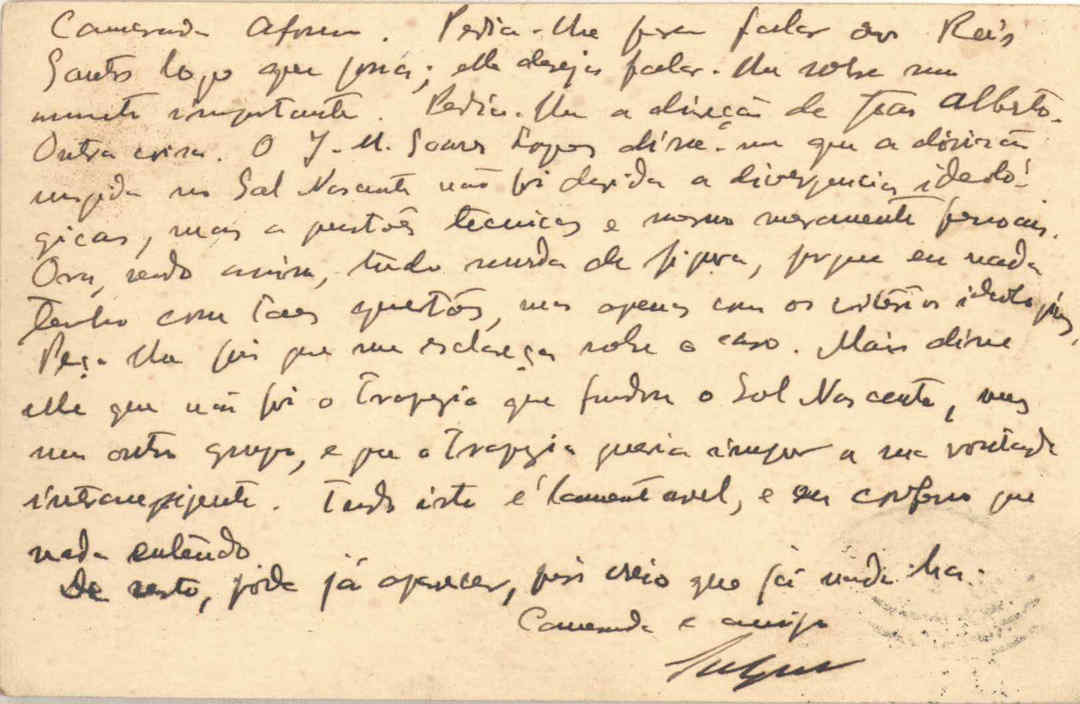 Camarada Afonso. Pedia-lhe para falar ao Reis
Santos logo que possa; elle deseja falar-lhe sobre um
assunto importante. Pedia-lhe a direcção de Jean Alberto.
Outra coisa. O J. M. Soares Lopes disse-me que a divisão
surgida no Sol Nascente não foi devida a divergencias ideoló-
gicas, mas a questões tecnicas e mesmo meramente pessoais.
Ora, sendo assim, tudo muda de figura, porque eu nada
tenho com taes questões, mas apenas com os critérios ideologicos.
Peço-lhe pois que me esclareça sobre o caso. Mais disse
elle que não foi o Trapezio que fundou o Sol Nascente, mas
um outro grupo, e que o Trapezio queria impor a sua vontade
intransigente. Tudo isto é lamentavel, e eu confesso que
nada entendo
De resto, póde já aparecer, pois creio que já nada ha.
Camarada e amigo